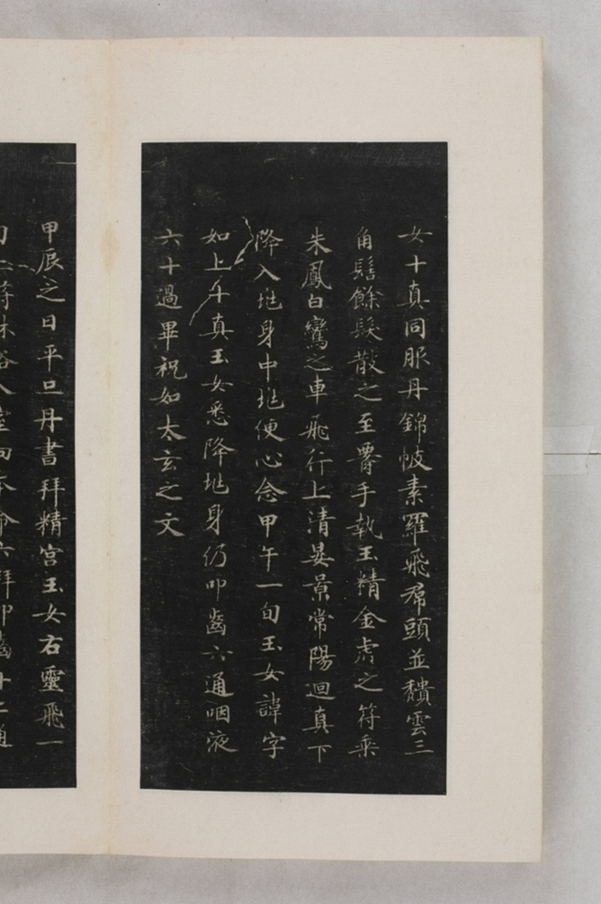 女十真同服丹錦帔素羅飛帬頭並頹雲三
角髻餘髮散之至腰手執玉精金虎之符乘
朱鳳白鸞之車飛行上清晏景常陽迴真下
降入兆身中兆便心念甲午一旬玉女諱字
如上十真玉女悉降兆身仍叩齒六通咽液
六十過畢祝如太玄之文
甲辰之日平旦丹書拜精宮玉女右靈飛一
旬上符沐浴入室向本命六拜叩齒十二通